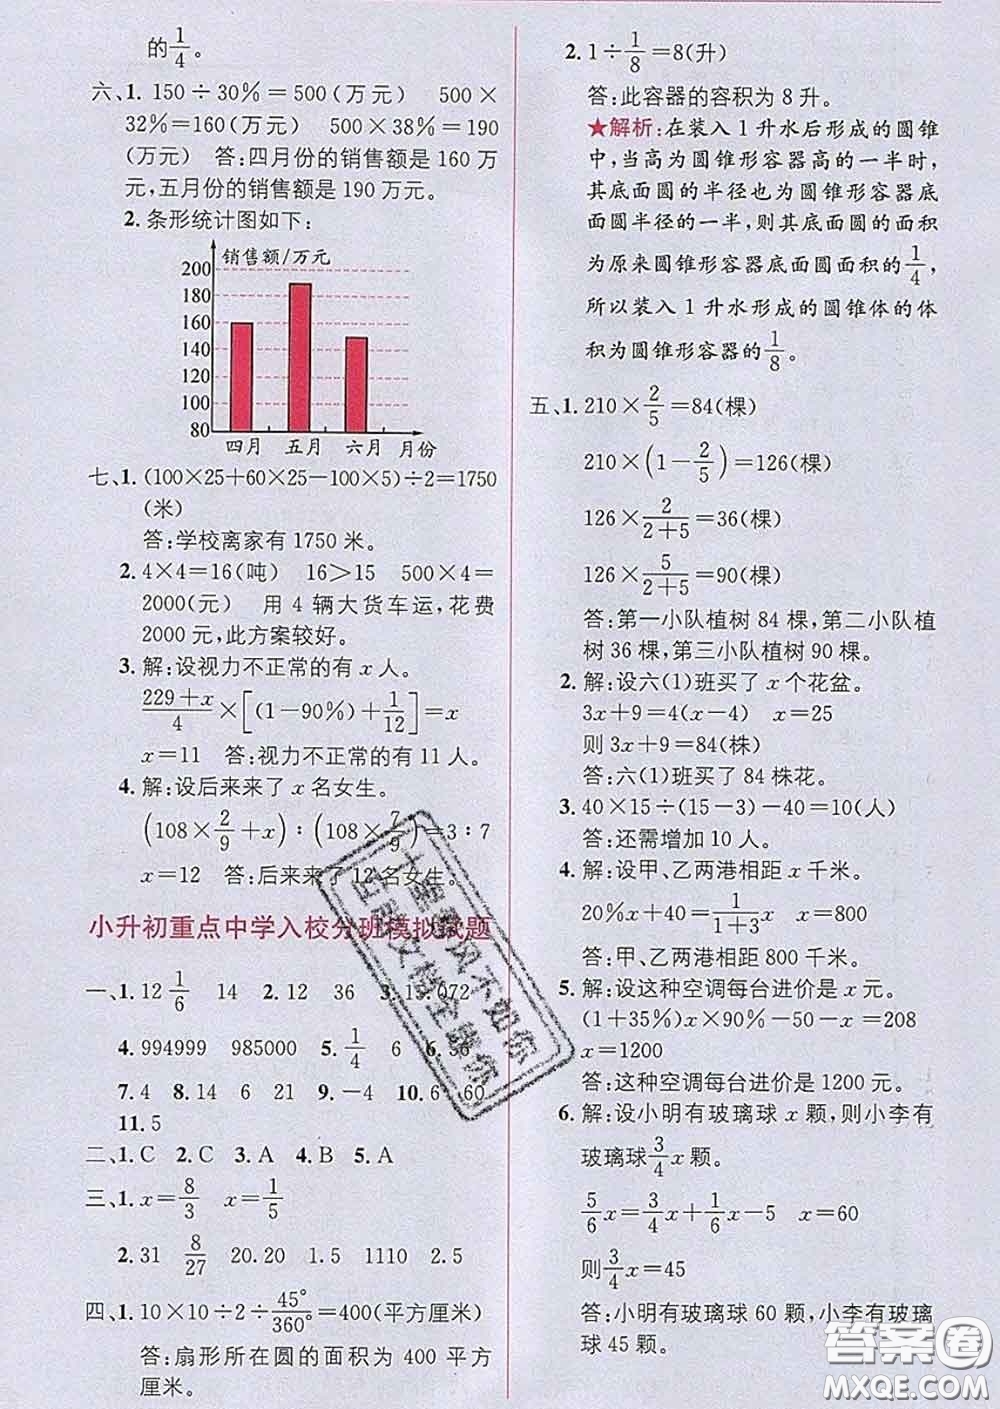 的1/4。
六、1. 150÷30%=500(万元) 500×
32%=160(万元) 500×38%=190
(万元) 答:四月份的销售额是 160 万
元,五月份的销售额是 190 万元。
2. 条形统计图如下:
销售额/万元
200
180
160
140
120
100
80
四月 五月 六月 月份
七、1. (100×25+60×25-100×5)÷2=1750
(米)
答:学校离家有 1750 米。
2. 4×4=16(吨) 16>15 500×4=
2000(元) 用 4 辆大货车运,花费
2000 元,此方案较好。
3. 解:设视力不正常的有 x 人。
(229+x)/4×[(1-90%)+1/12]=x
x=11 答:视力不正常的有 11 人。
4. 解:设后来来了 x 名女生。
(108×2/9+x):(108×7/9)=3:7
x=12 答:后来来了 12 名女生。
小升初重点中学入校分班模拟试题
一、1. 12 1/6 14 2. 12 36 3. 15.072
4. 994999 985000 5. 1/4 6 6. 36
7. 4 8. 14 6 21 9. -4 10. 6 60
11. 5
二、1. C 2. C 3. A 4. B 5. A
三、1. x=8/3 x=1/5
2. 31 8/27 20.20 1.5 1110 2.5
四、1. 10×10÷2÷45°/360°=400(平方厘米)
答:扇形所在圆的面积为 400 平方
厘米。
2. 1÷1/8=8(升)
答:此容器的容积为 8 升。
★解析:在装入 1 升水后形成的圆锥
中,当高为圆锥形容器高的一半时,
其底面圆的半径也为圆锥形容器底
面圆半径的一半,则其底面圆的面积
为原来圆锥形容器底面圆面积的1/4,
所以装入 1 升水形成的圆锥体的体
积为圆锥形容器的1/8。
五、1. 210×2/5=84(棵)
210×(1-2/5)=126(棵)
126×2/(2+5)=36(棵)
126×5/(2+5)=90(棵)
答:第一小队植树 84 棵,第二小队植
树 36 棵,第三小队植树 90 棵。
2. 解:设六(1)班买了 x 个花盆。
3x+9=4(x-4) x=25
则 3x+9=84(株)
答:六(1)班买了 84 株花。
3. 40×15÷(15-3)-40=10(人)
答:还需增加 10 人。
4. 解:设甲、乙两港相距 x 千米。
20%x+40=1/(1+3)x x=800
答:甲、乙两港相距 800 千米。
5. 解:设这种空调每台进价是 x 元。
(1+35%)x×90%-50-x=208
x=1200
答:这种空调每台进价是 1200 元。
6. 解:设小明有玻璃球 x 颗,则小李有
玻璃球3/4x 颗。
5/6x=3/4x+1/6x-5 x=60
则3/4x=45
答:小明有玻璃球 60 颗,小李有玻璃
球 45 颗。
十里春风不如你
百度文档全肆你
答案圈
MXQE.COM